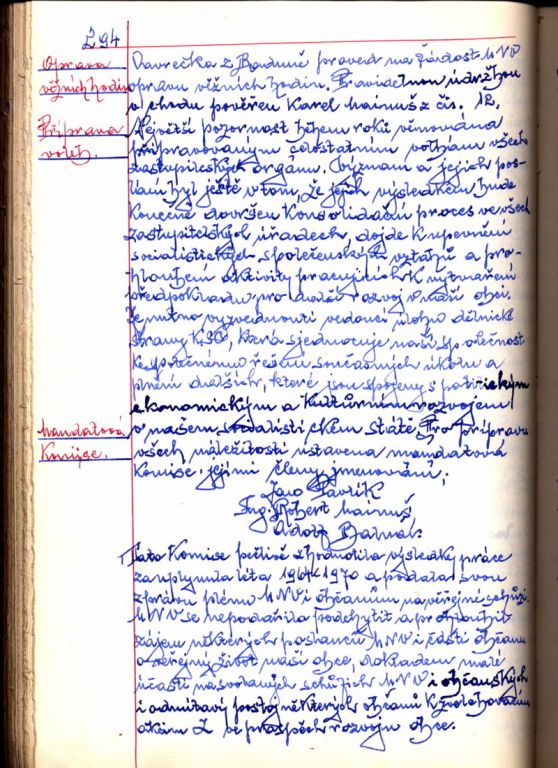 294
Oprava
věžních hodin
Davrečka z Bánduně proved na žádost MNV
opravu věžních hodin. Pravidelnou údržbou
o chodu pověřen Karel Mainuš z čís. 12.
Příprava
voleb.
Největší pozornost během roků věnována
připravovaným celostátním volbám všech
zastupitelských orgánů. Význam a jejich pos-
lání byl ještě v tom, že jejich výsledkem bude
konečné dovršen konsolidační proces ve všech
zastupitelských úřadech, dojde k upevnění
socialistických společenských vztahů a pro-
hloubení aktivity pracujících k vytvoření
předpokladu pro další rozvoj v naší obci.
Je nutno vyzvednouti vedoucí úlohu dělnické
strany KSČ, která sjednocuje naši společnost
ke společnému řešení současných úkolů a
plnění dalších, které jsou spojeny s politickým
ekonomickým a kulturním rozvojem
Mandátová
Komise.
v našem socialistickém státě. Pro přípravu
všech náležitostí ustavena mandátová
komise. Jejími členy jmenováni:
Jano Pavlík
Ing. Robert Mainuš
Adolf
Tato komise pečlivě zhodnotila výsledky práce
za uplynulá léta 1964-1970 a podala svou
zprávu plénu MNV i občanům na veřejné schůzi.
MNV se nepodařilo podchytit a prohloubit
zájem některých poslanců MNV i části občanů
o veřejný život naší obce, dokladem malé
účasti na svolaných schůzích MNV i občanských
i odmítavý postoj některých občanů k zvelebovacím
akcím Z ve prospěch rozvoje obce.